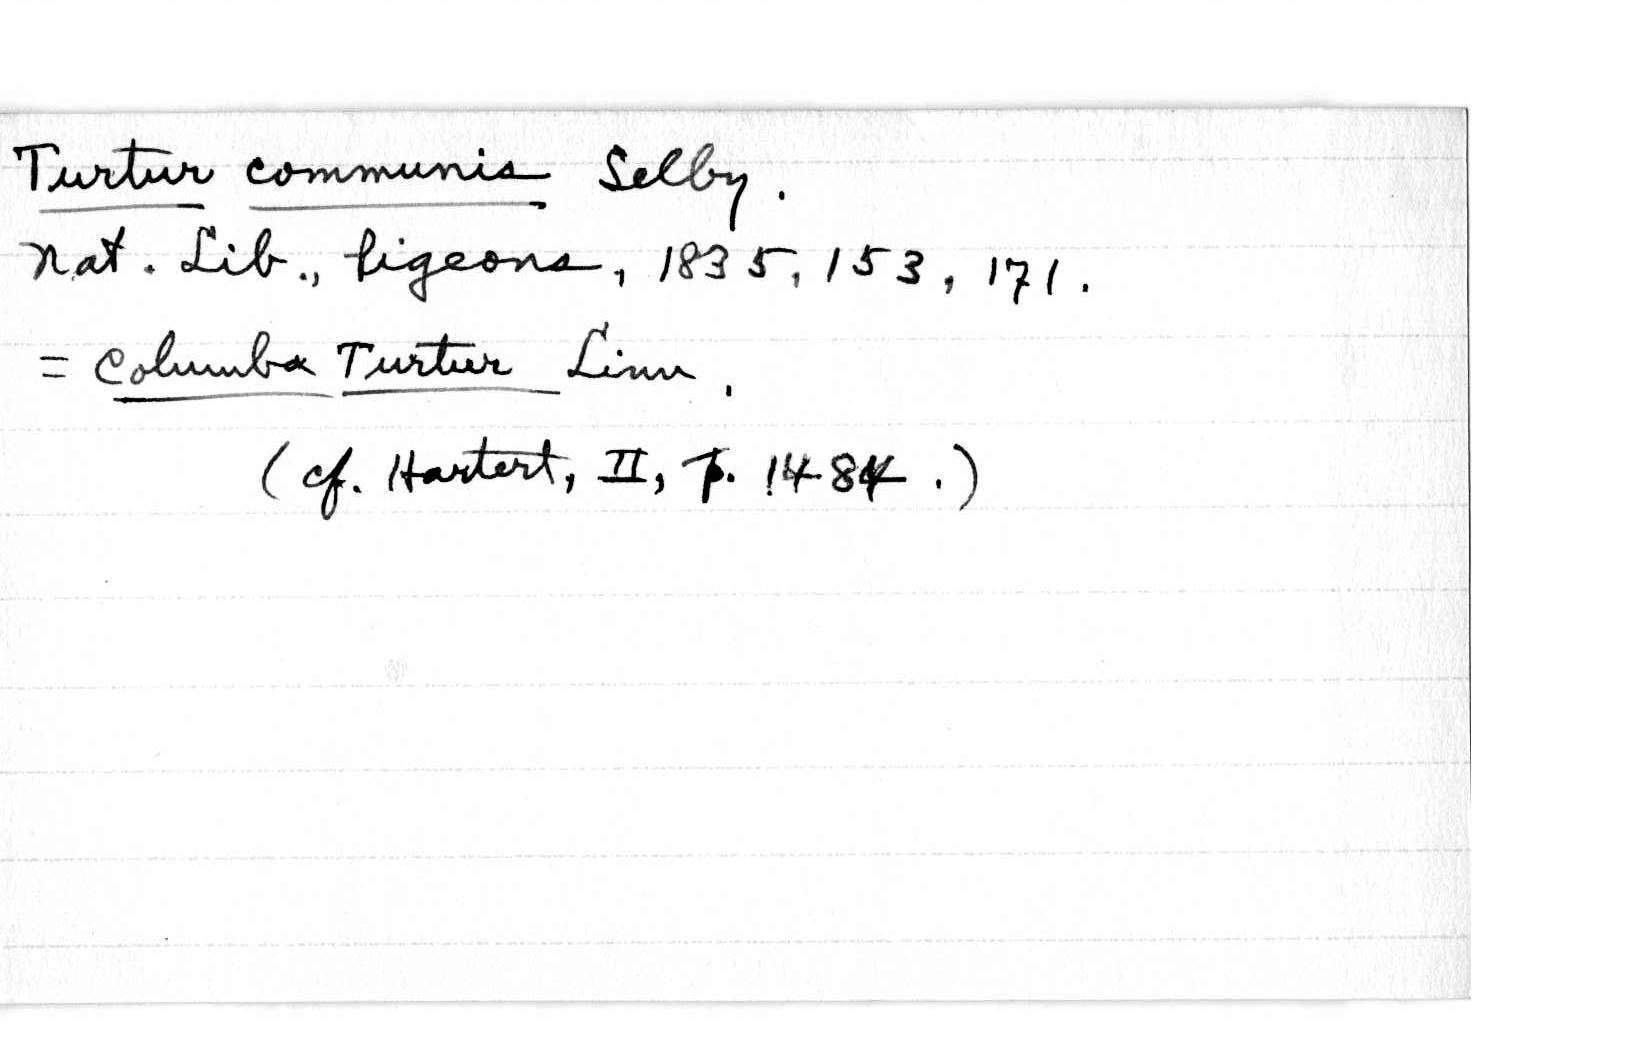 Turtur communis Selby.
Nat. Lib., Pigeons, 1835, 153, 171.
= Columba Turtur Linn.
(cf. Hartert, II, p. 1484.)